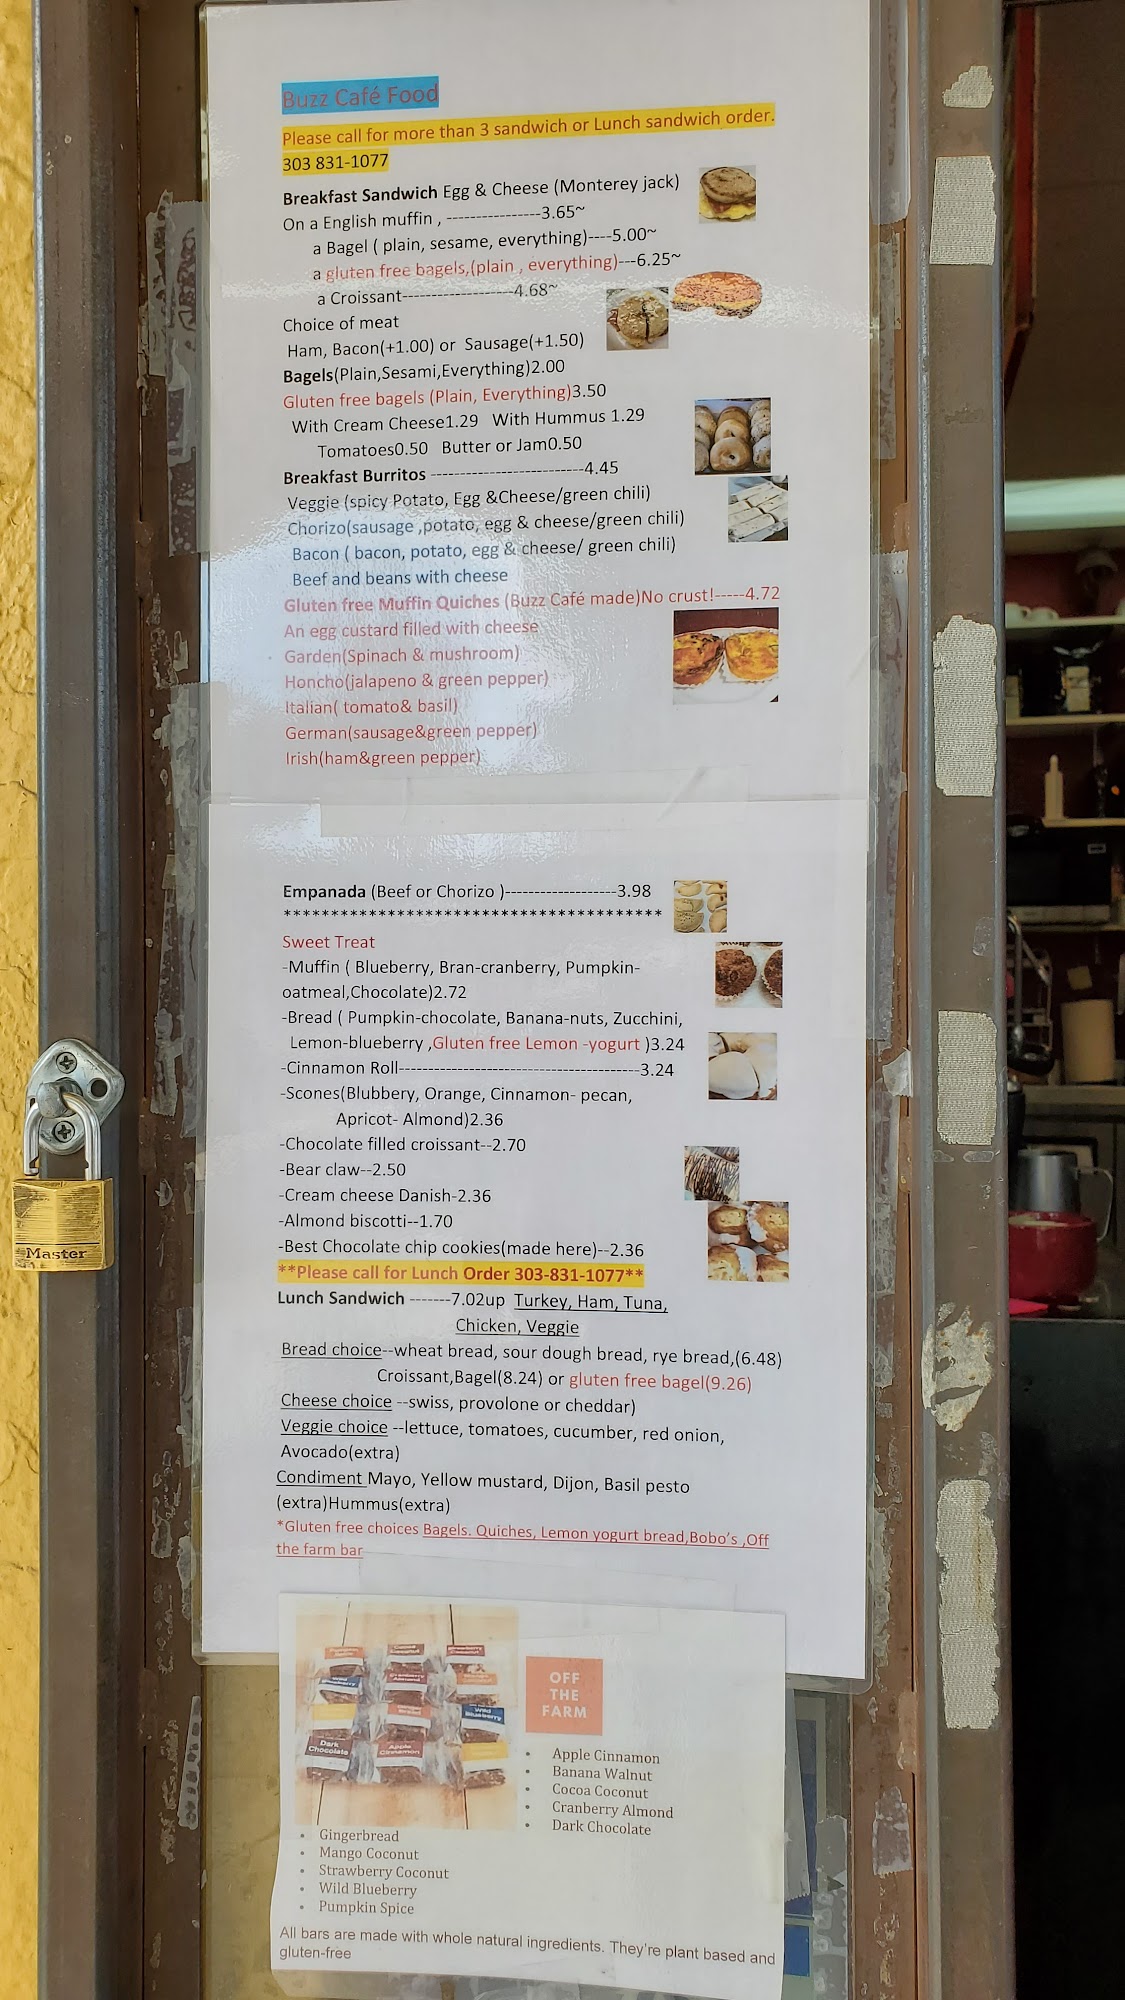 Buzz Café Food
Please call for more than 3 sandwich or Lunch sandwich order.
303 831-1077
Breakfast Sandwich Egg & Cheese (Monterey jack)
On a English muffin , ----------------3.65~
a Bagel ( plain, sesame, everything)----5.00~
a gluten free bagels,(plain , everything)---6.25~
a Croissant-------------------4.68~
Choice of meat
Ham, Bacon(+1.00) or Sausage(+1.50)
Bagels(Plain,Sesami,Everything)2.00
Gluten free bagels (Plain, Everything)3.50
With Cream Cheese1.29 With Hummus 1.29
Tomatoes0.50 Butter or Jam0.50
Breakfast Burritos --------------------------4.45
Veggie (spicy Potato, Egg &Cheese/green chili)
Chorizo(sausage ,potato, egg & cheese/green chili)
Bacon ( bacon, potato, egg & cheese/ green chili)
Beef and beans with cheese
Gluten free Muffin Quiches (Buzz Café made)No crust!-----4.72
An egg custard filled with cheese
Garden(Spinach & mushroom)
Honcho(jalapeno & green pepper)
Italian( tomato& basil)
German(sausage&green pepper)
Irish(ham&green pepper)
Empanada (Beef or Chorizo )-------------------3.98
****************************************
Sweet Treat
-Muffin ( Blueberry, Bran-cranberry, Pumpkin-
oatmeal,Chocolate)2.72
-Bread ( Pumpkin-chocolate, Banana-nuts, Zucchini,
Lemon-blueberry ,Gluten free Lemon -yogurt )3.24
-Cinnamon Roll-----------------------------------------3.24
-Scones(Blubbery, Orange, Cinnamon- pecan,
Apricot- Almond)2.36
-Chocolate filled croissant--2.70
-Bear claw--2.50
-Cream cheese Danish-2.36
-Almond biscotti--1.70
-Best Chocolate chip cookies(made here)--2.36
**Please call for Lunch Order 303-831-1077**
Lunch Sandwich -------7.02up Turkey, Ham, Tuna,
Chicken, Veggie
Bread choice--wheat bread, sour dough bread, rye bread,(6.48)
Croissant,Bagel(8.24) or gluten free bagel(9.26)
Cheese choice --swiss, provolone or cheddar)
Veggie choice --lettuce, tomatoes, cucumber, red onion,
Avocado(extra)
Condiment Mayo, Yellow mustard, Dijon, Basil pesto
(extra)Hummus(extra)
*Gluten free choices Bagels. Quiches, Lemon yogurt bread,Bobo's ,Off
the farm bar
OFF
THE
FARM
Wild Blueberry
Dark
Chocolate
Apple
Cinnamon
• Apple Cinnamon
• Banana Walnut
• Cocoa Coconut
• Cranberry Almond
• Dark Chocolate
• Gingerbread
• Mango Coconut
• Strawberry Coconut
• Wild Blueberry
• Pumpkin Spice
All bars are made with whole natural ingredients. They're plant based and
gluten-free
Master